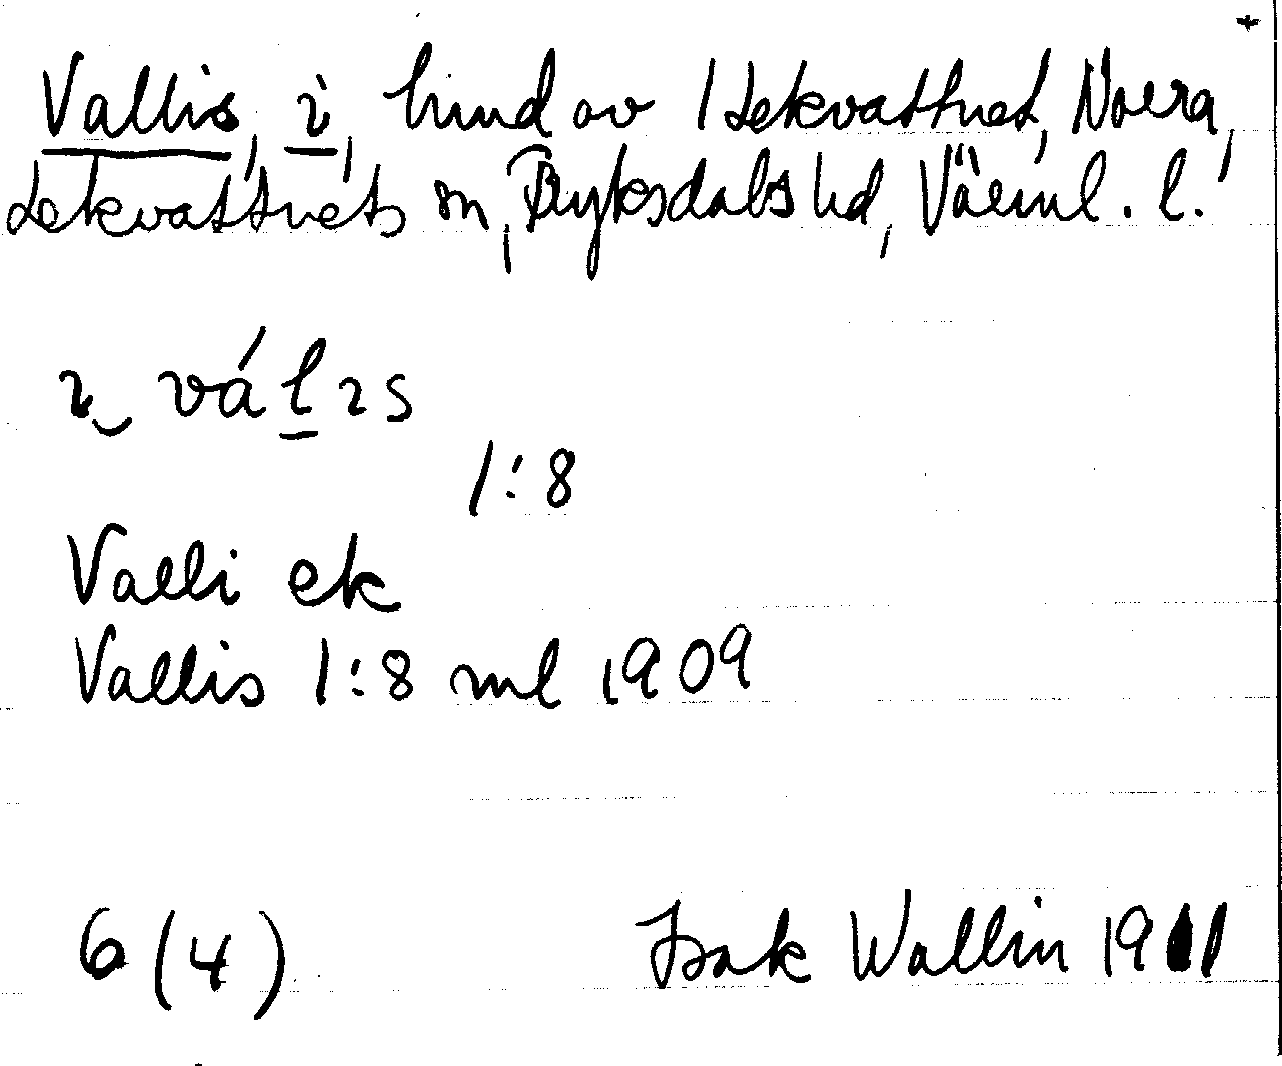 +
Vallis, i, hmd av 1 Lekvattnet, Norra,
Lekvattnets sn, Fryksdals hd, Värml. l.
ɩ‿ váḻɩs
1:8
Valli ek
Vallis 1:8 ml 1909
6 (4) Isak Wallin 1911